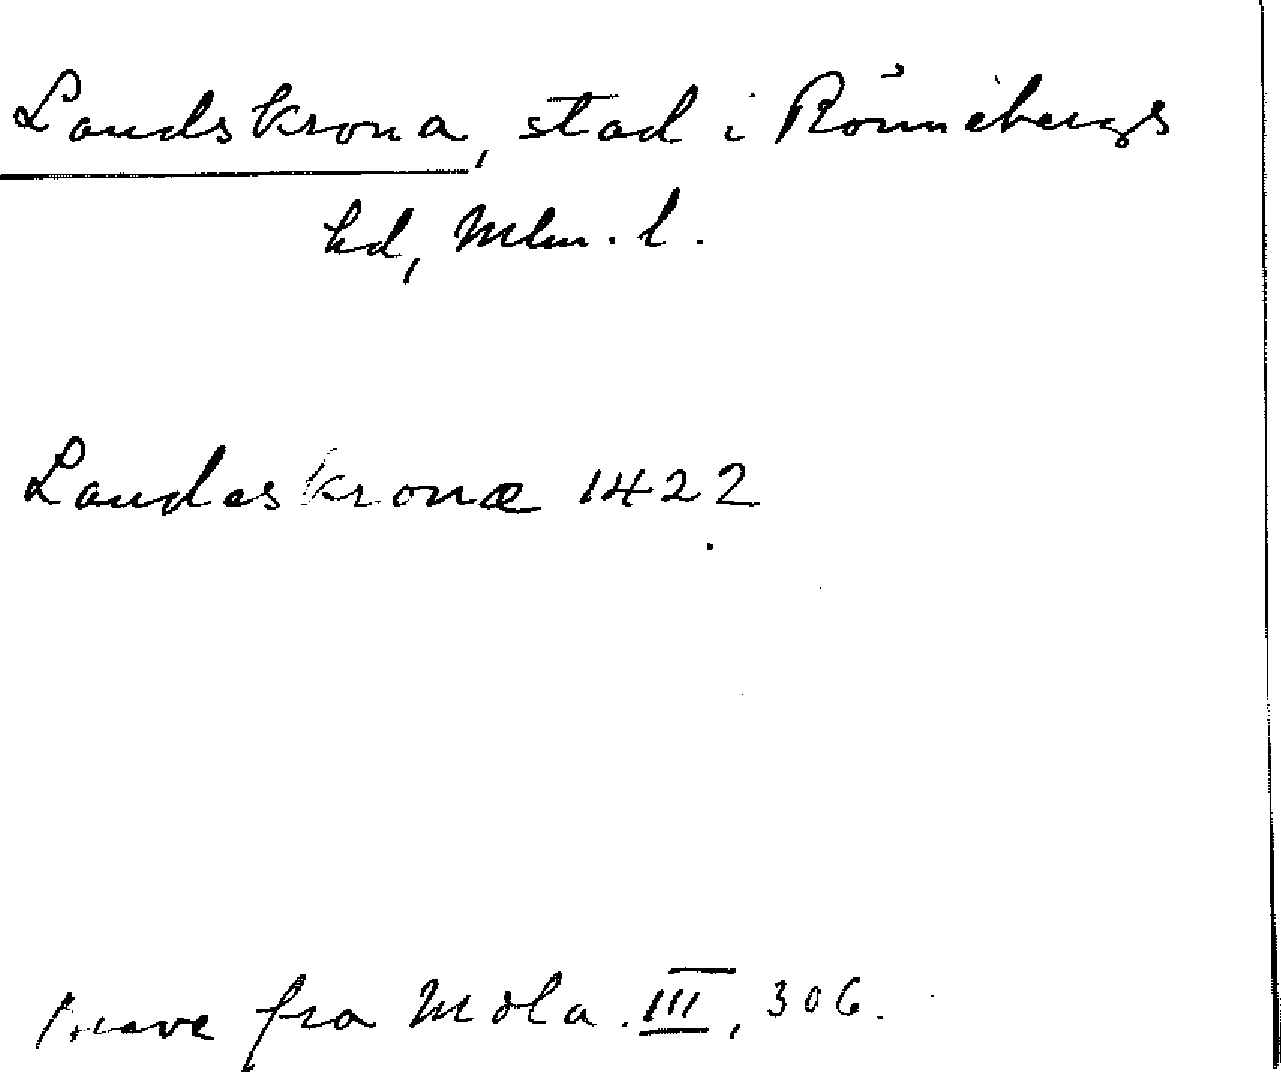 Landskrona, stad i Rönnebergs
hd, Mlm. l.
Landeskronæ 1422
fra Mðla. III, 306.